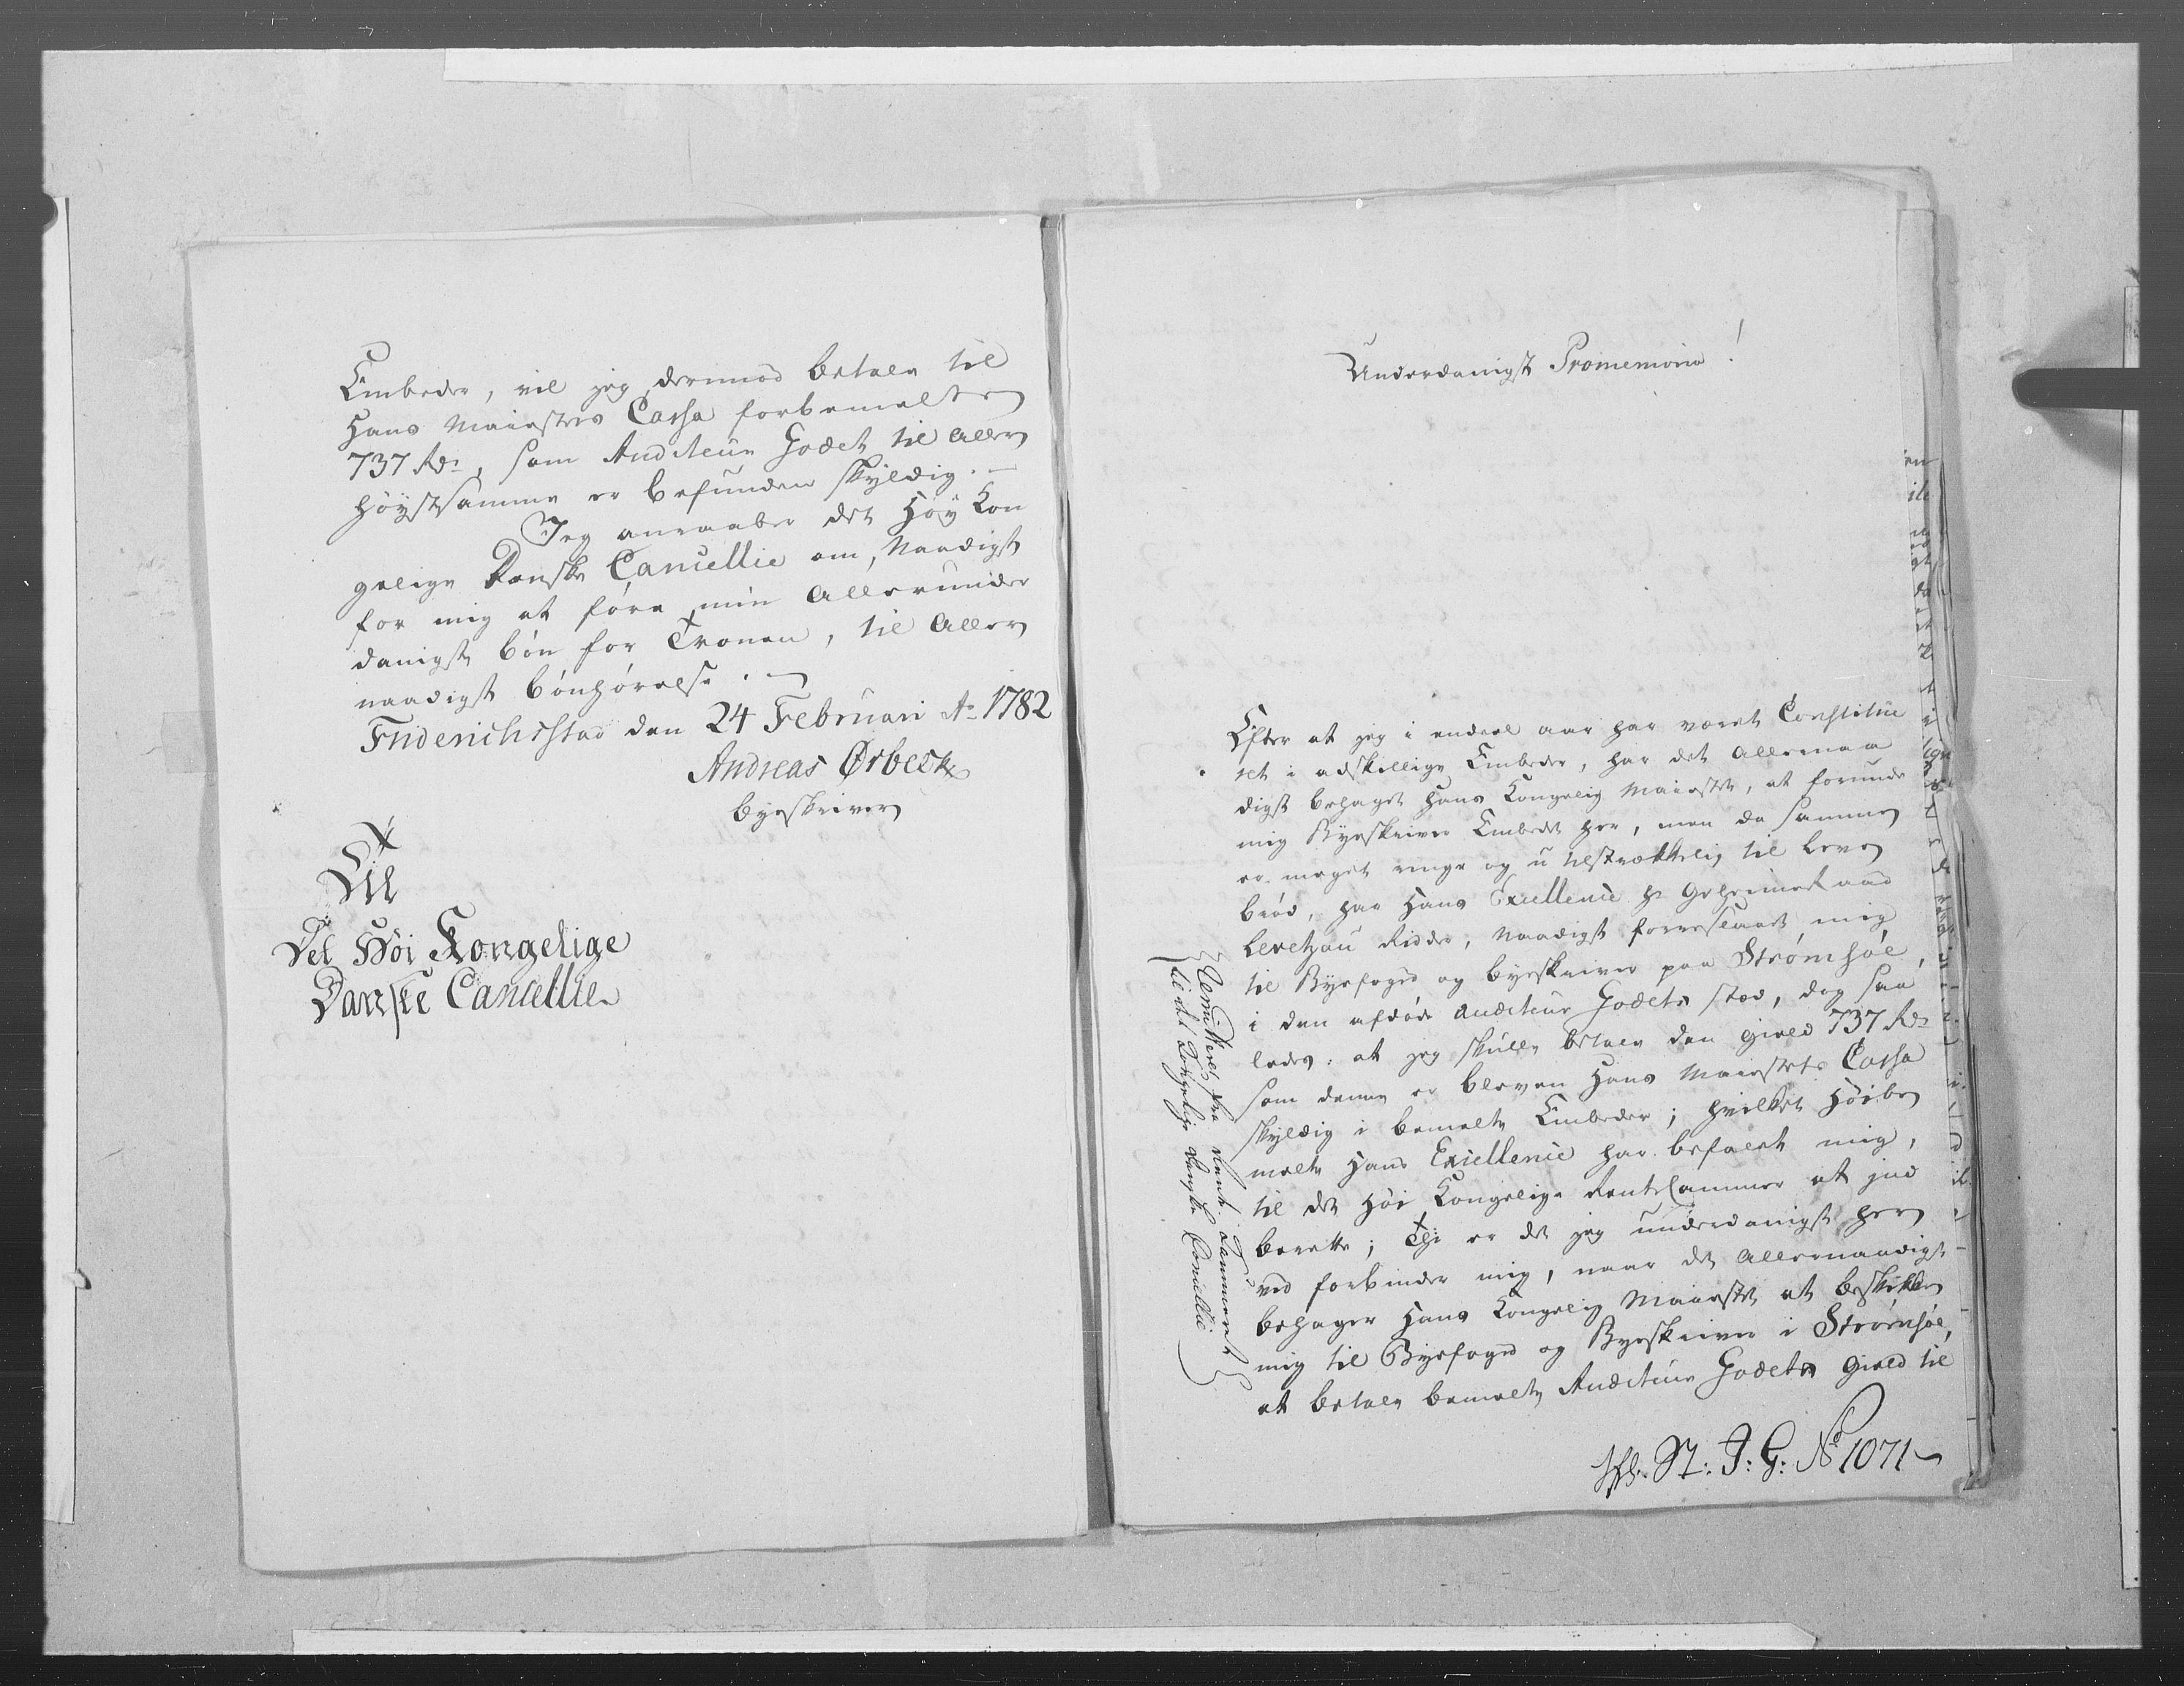 Embeder, vil jeg derimod betale til
Hans Maiestets Cassa forbemelte
737 Rdr, som Auditeur Godet til Aller
høystsamme er befunden skyldig.
Jeg anraaber det Høy Kon
gelige Danske Cancellie om, Naadigst
for mig at føre min Allerunder
danigste bøn for Tronen, til Aller
naadigst bønhørelse.
Friderichsstad den 24 Februari Ao 1782
Andreas Ørbeck
byeskriver
Til
Det Høi Kongelige
Danske Cancellie
Underdanigst Promemoria!
Efter at jeg i endeel aar har været Constitue
ret i adskillige Embeder, har det Allernaa
digst behaget Hans Kongelig Maiestet, at forunde
mig Byeskriver Embedet her, men da samme
er meget ringe og u tilstrækkelig til leve
brød, har Hans Excellence Hr Geheimeraad
Levetzau Ridder, Naadigst foreslaaet mig
til Byefoged og byeskriver paa Strømsøe,
i den afdøde Auditeur Godets sted, dog saa
ledes: at jeg skulle betale den gield 737 Rdr
som denne er bleven Hans Maiestets Cassa
skyldig i bemelte Embeder; hvilket Høibe
melte Hans Excellence har befalet mig,
til det Høi Kongelige RenteCammer at ind
berette; Thi er det jeg underdanigst her
ved forbinder mig, naar det Allernaadigst
behager Hans Kongelig Maiestet at beskikke
mig til Byefoged og Byeskriver i Strømsøe,
at betale bemelte Auditeur Godets Gield til
Remitteret fra Rente Kammeret
til det Kongelige Danske Cancellie
St: J: G: No 1071